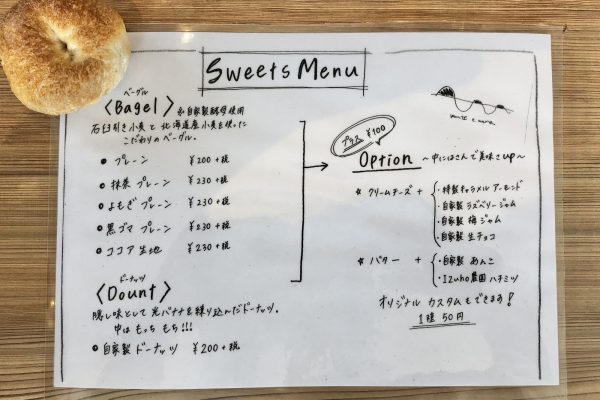 Sweets Menu
ベーグル
〈Bagel〉 ※自家製酵母使用
石臼引き小麦と北海道産小麦を使った
こだわりのベーグル。
プレーン ¥200+税
抹茶プレーン ¥230+税
よもぎプレーン ¥230+税
黒ゴマプレーン ¥230+税
ココア生地 ¥230+税
ドーナッツ
〈Dount〉
隠し味として 完バナナを練り込んだドーナッツ。
中はもっちもち!!!
自家製 ドーナッツ ¥200+税
プラス ¥100
Option ～中にはさんで美味さup～
☆ クリームチーズ +
・特製キャラメルアーモンド
・自家製 ラズベリージャム
・自家製 梅ジャム
・自家製 生チョコ
☆ バター +
・自家製 あんこ
・Izuho農園 ハチミツ
オリジナル カスタムもできます!
1種 50円